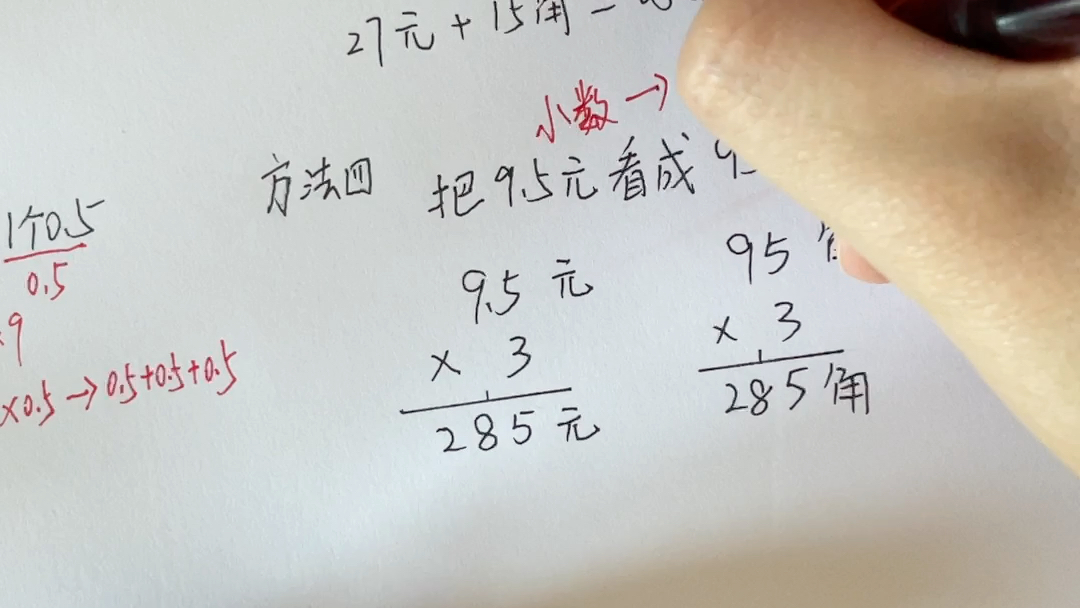 27元+15角=
小数→
方法四 把9.5元看成9
1个0.5
0.5
9
×0.5→0.5+0.5+0.5
9.5元 95
×3 ×3
285元 285角